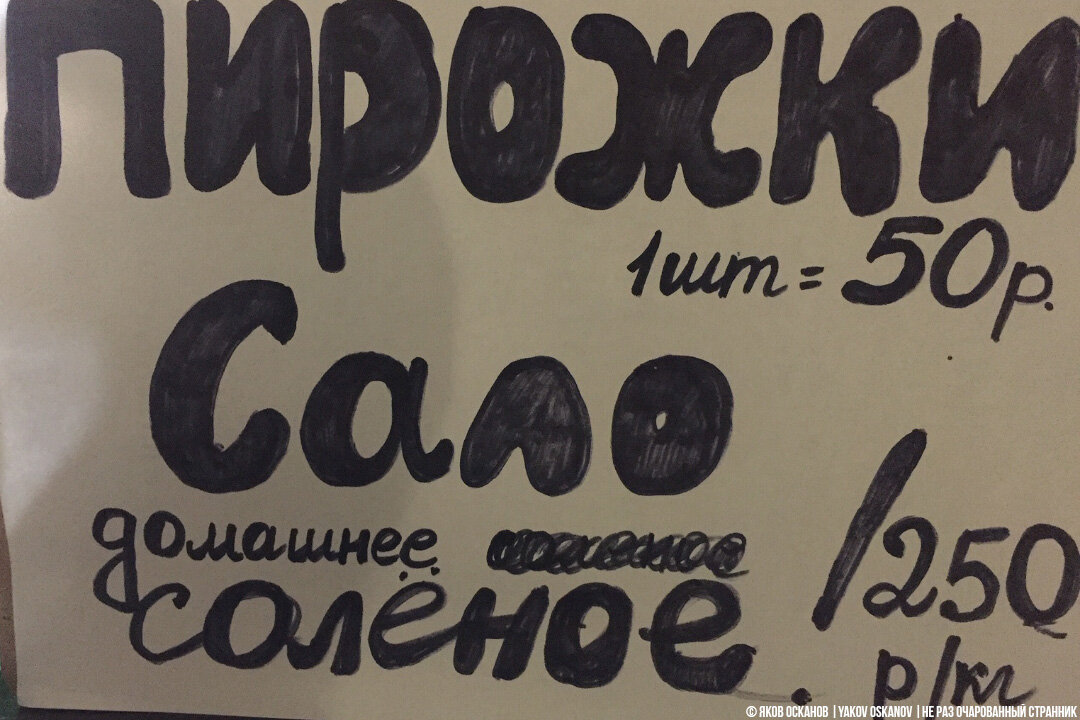 пирожки
1шт = 50р.
Сало
домашнее
солёное. /250
р/кг
© ЯКОВ ОСКАНОВ | YAKOV OSKANOV | НЕ РАЗ ОЧАРОВАННЫЙ СТРАННИК